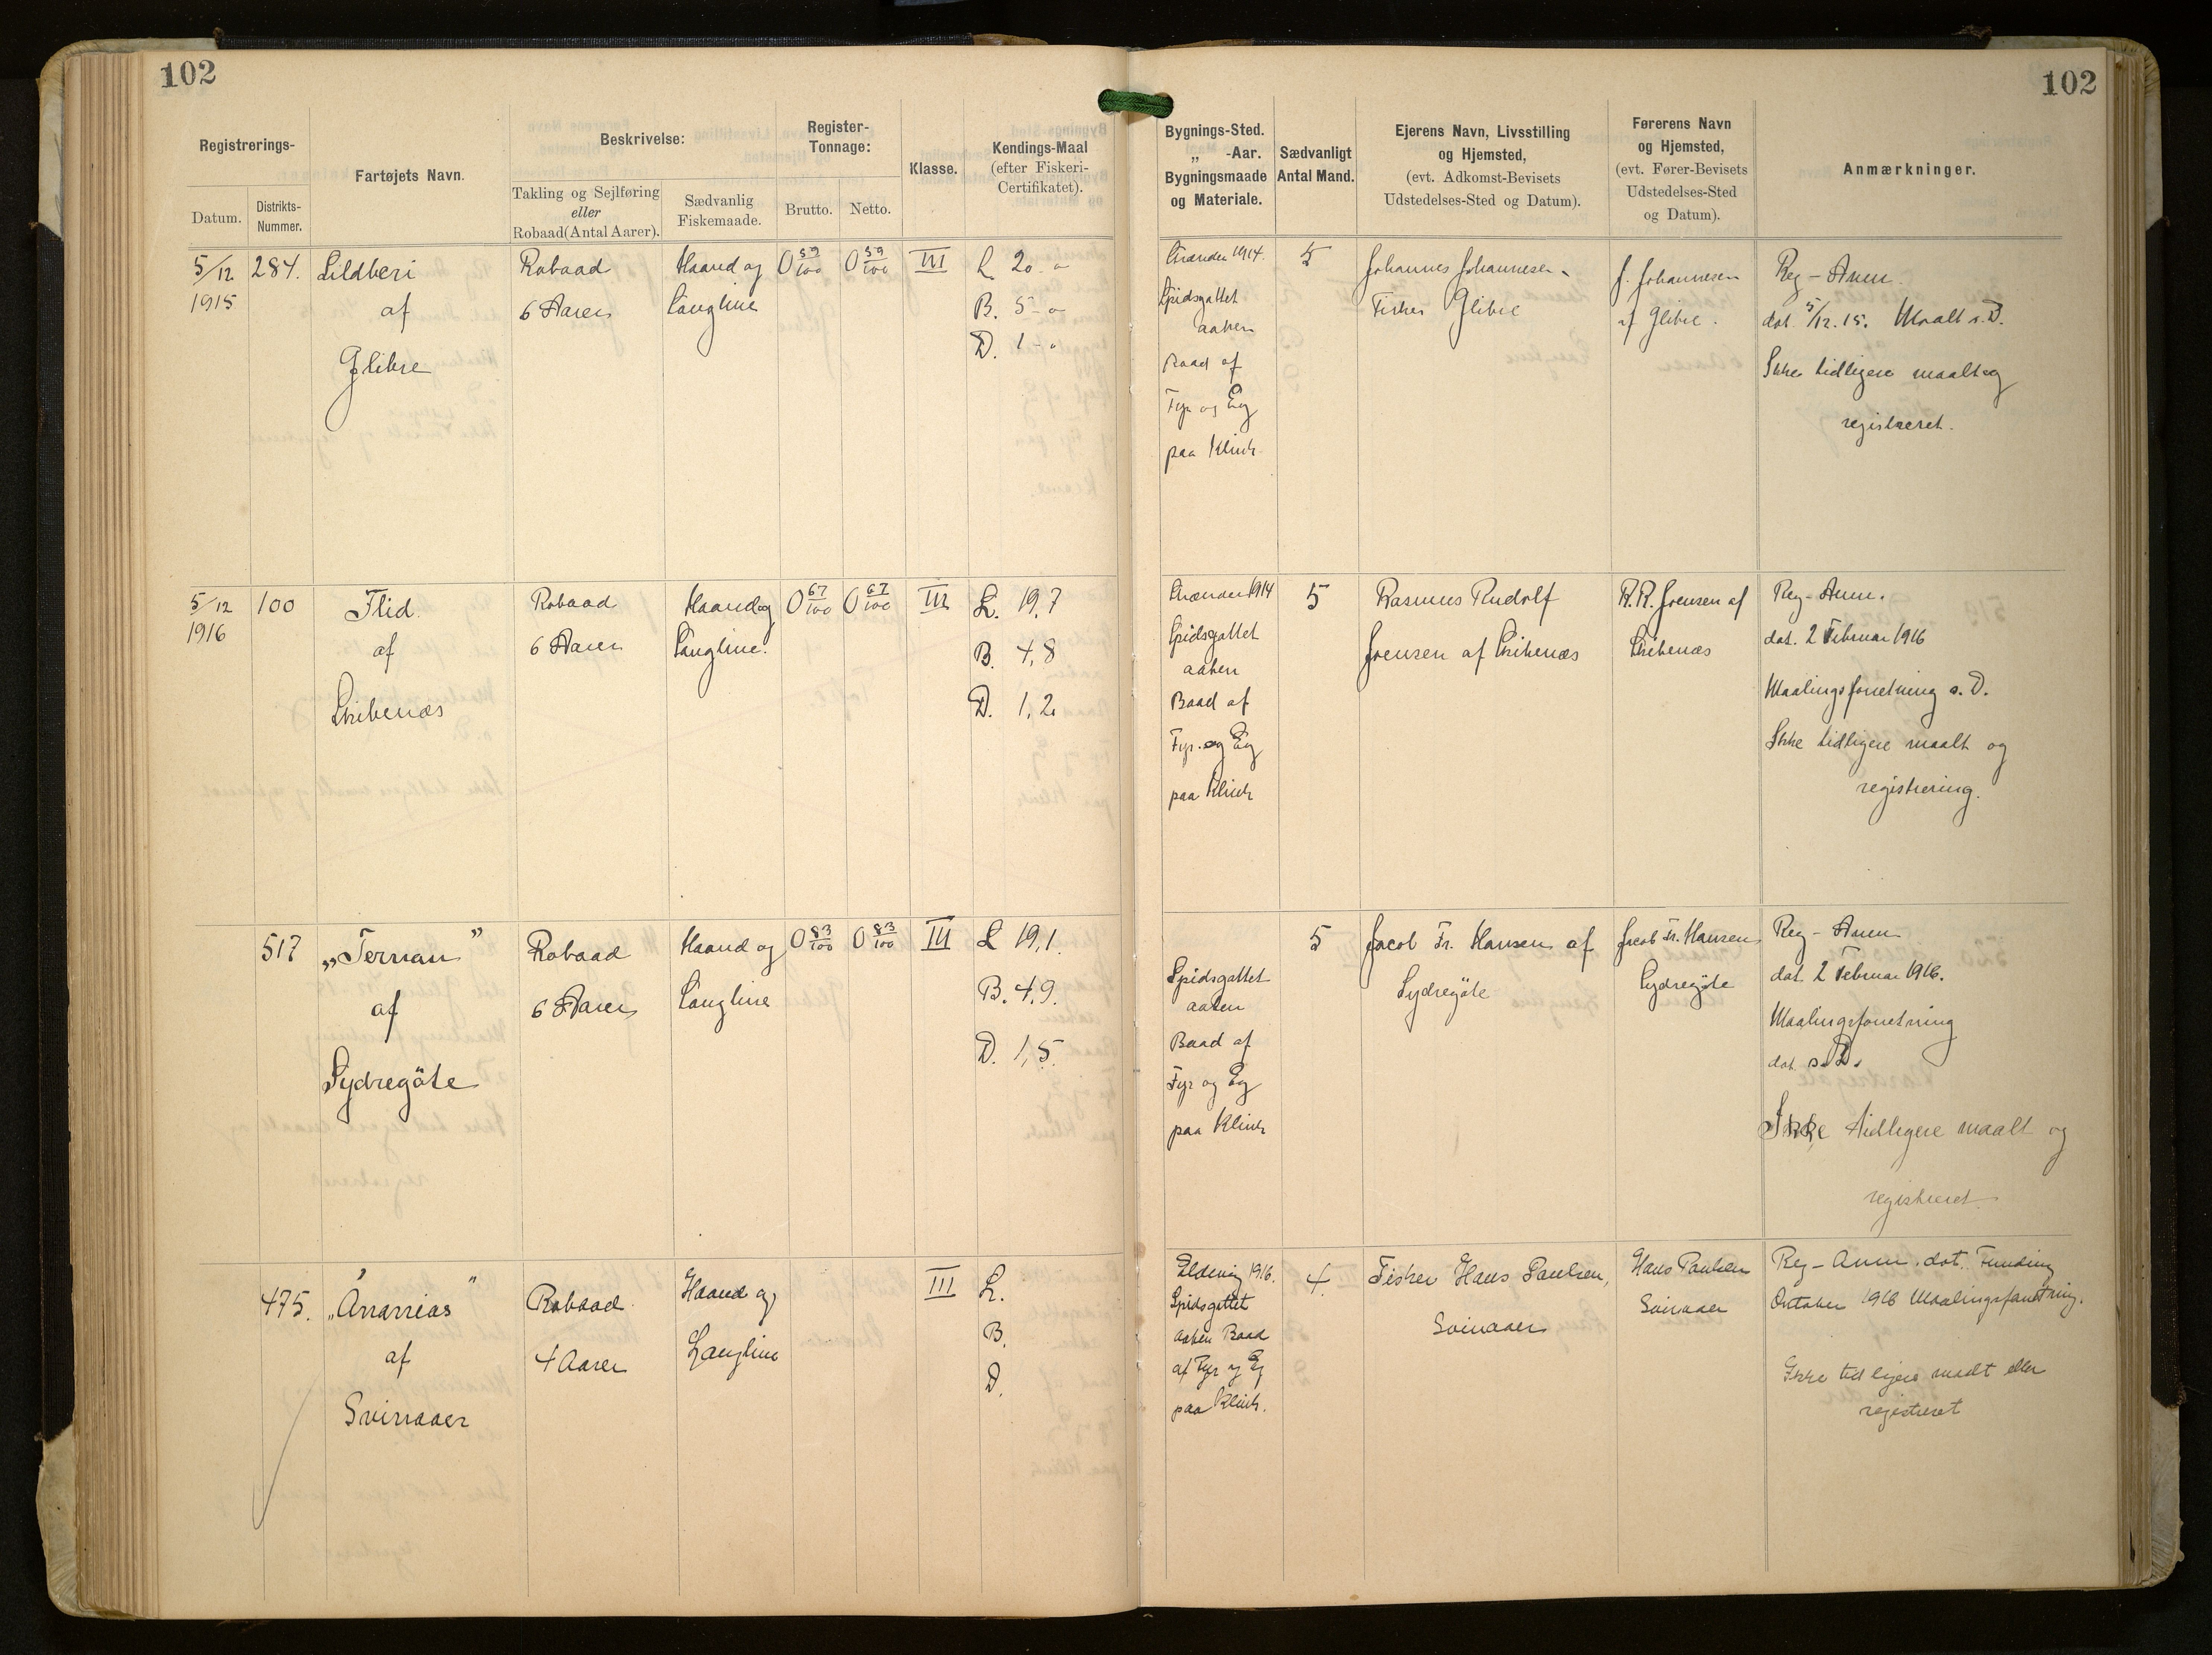 102
102
Registrerings-
Datum.
Distrikts-
Nummer.
Fartøjets Navn.
Beskrivelse:
Takling og Sejlføring
eller
Robaad (Antal Aarer).
Sædvanlig
Fiskemaade.
Register-
Tonnage:
Brutto.
Netto.
Klasse.
Kendings-Maal
(efter Fiskeri-
Certifikatet).
Bygnings-Sted.
„ -Aar.
Bygningsmaade
og Materiale.
Sædvanligt
Antal Mand.
Ejerens Navn, Livsstilling
og Hjemsted,
(evt. Adkomst-Bevisets
Udstedelses-Sted og Datum).
Førerens Navn
og Hjemsted,
(evt. Fører-Bevisets
Udstedelses-Sted
og Datum).
Anmærkninger.
5/12
1915
284.
Sildberi
af
Glibre
Robaad
6 Aarer
Haand og
Langline
0 59/100
0 59/100
III
L 20 - "
B. 5 - "
D. 1 - "
1914.
Spidsgattet
aaben
Baad af
Fyr og Eg
paa Klink
5
Johannes Johannesen
Fisker Glibre
J. Johannesen
af Glibre.
Reg - Anm.
dat. 5/12. 15. Maalt s. D.
Ikke tidligere maalt og
registreret.
5/12
1916
100
Flid
af
Skibenæs
Robaad
6 Aarer
Haand og
Langline.
0 67/100
0 67/100
III
L. 19,7
B. 4,8
D. 1,2
1914
Spidsgattet
aaben
Baad af
Fyr. og Eg
paa Klink
5
Rasmus Rudolf
Joensen af Skibenæs
R. R. Joensen af
Skibenæs
Reg - Anm.
dat. 2 Februar 1916
Maalingsforretning s. D.
Ikke tidligere maalt og
registrering.
517
„Ternan”
af
Sydregöte
Robaad
6 Aarer
Haand og
Langline
0 83/100
0 83/100
III
L 19,1.
B. 4,9.
D. 1,5.
Spidsgattet
aaben
Baad af
Fyr og Eg
paa Klink
5
Jacob Fr. Hansen af
Sydregöte
Jacob Fr. Hansen
Sydregöte
Reg - Anm
dat 2 Februar 1916.
Maalingsforretning
dat. s. D.
Ikke tidligere maalt og
registreret
475.
„Ánanias”
af
Svinaaer
Robaad
4 Aarer
Haand og
Langline
III
L.
B.
D.
Eldevig 1916.
Spidsgattet
aaben Baad
af Fyr og Eg
paa Klink.
4.
Fisker Hans Poulsen,
Svinaaer
Hans Poulsen
Svinaaer
Reg - Anm. dat. Funding
October 1916 Maalingsforretning.
Ikke tidligere maalt eller
registreret